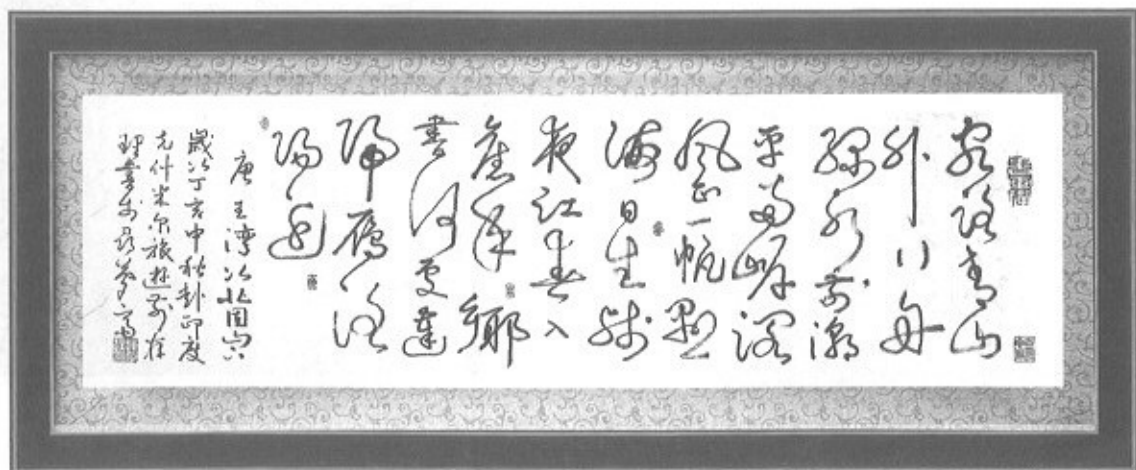 客路青山
外行舟
綠水前潮
平兩岸闊
風正一帆懸
海日生殘
夜江春入
舊年鄉
書何處達
歸雁洛
陽邊
唐王灣次北固山下
歲次丁亥中秋赴印度
克什米尔旅遊前於